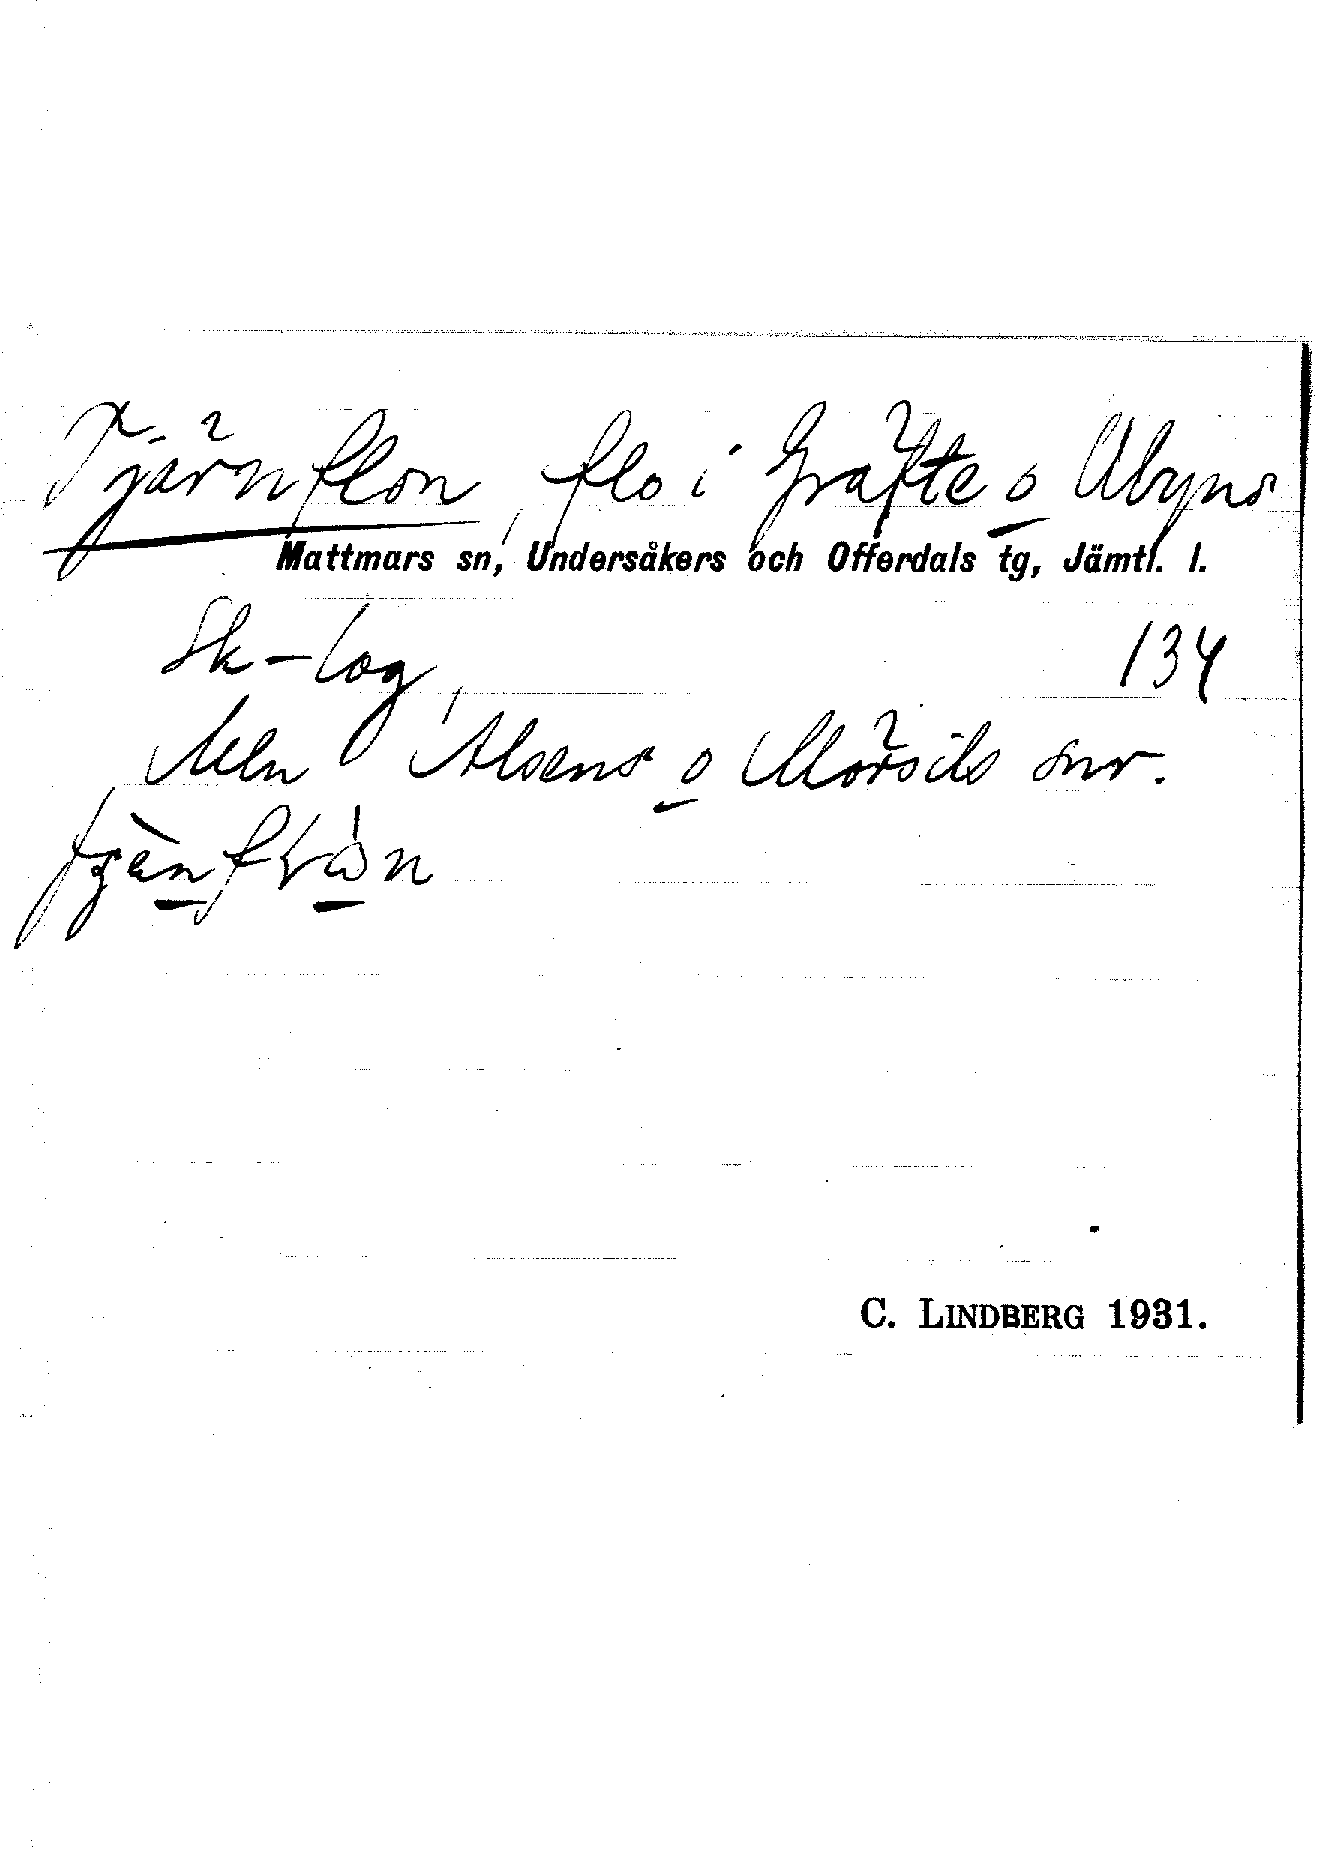 Tjärnflon, flo i Gräfte o Åbyns
Mattmars sn, Undersåkers och Offerdals tg, Jämtl. l.
Sk-log, 134
Mln Alsens o Mörsils snr.
C. LINDBERG 1931.